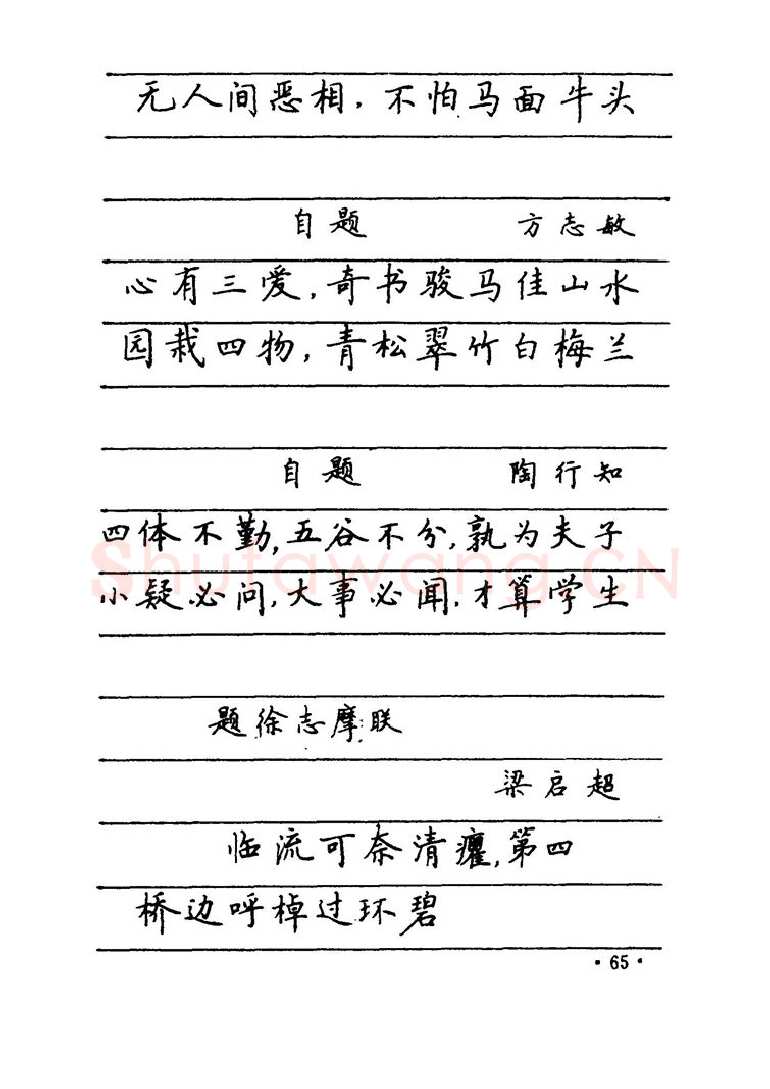 无人间恶相，不怕马面牛头
自题 方志敏
心有三爱，奇书骏马佳山水
园栽四物，青松翠竹白梅兰
自题 陶行知
四体不勤，五谷不分，孰为夫子
小疑必问，大事必闻，才算学生
Shufawang.CN
题徐志摩联
梁启超
临流可奈清癯，第四
桥边呼棹过环碧
·65·